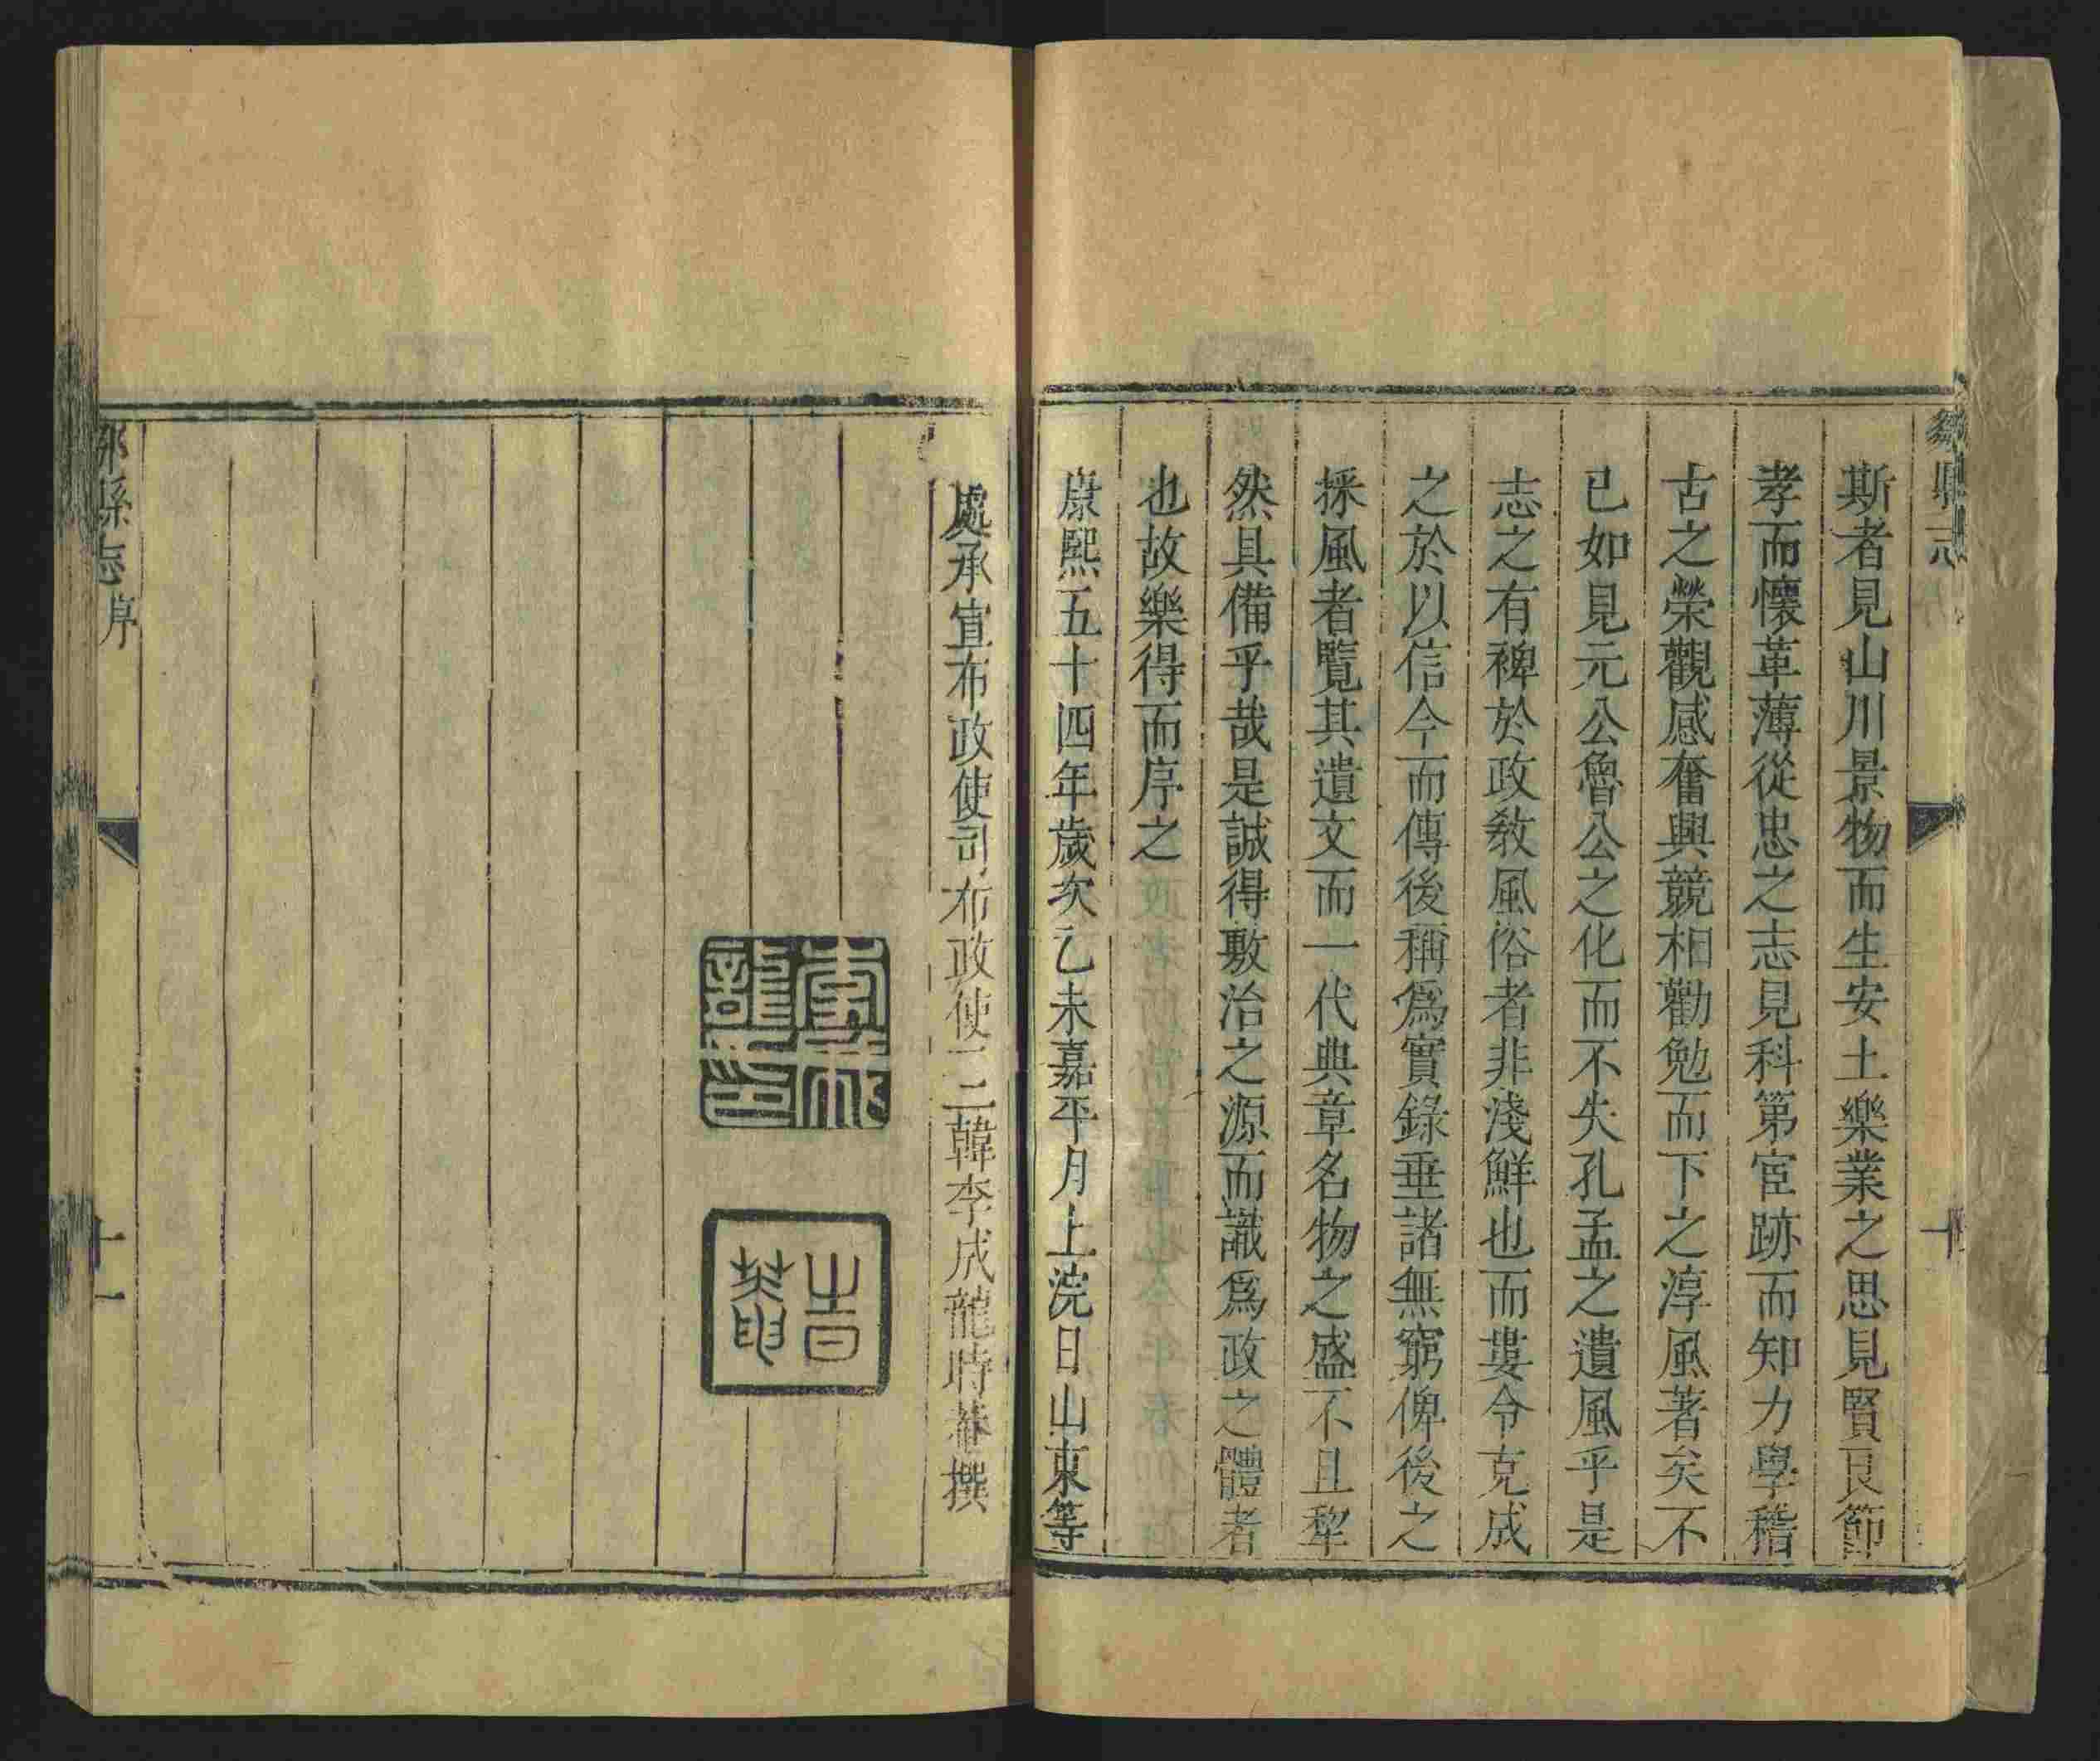 鄒縣志
十
斯者見山川景物而生安土樂業之思見賢良節
孝而懷革薄從忠之志見科第宦跡而知力學稽
古之榮觀感奮興競相勸勉而下之淳風著矣不
已如見元公魯公之化而不失孔孟之遺風乎是
志之有裨於政敎風俗者非淺鮮也而婁令克成
之於以信今而傳後稱爲實錄垂諸無窮俾後之
採風者覧其遺文而一代典章名物之盛不且犂
然具備乎哉是誠得敷治之源而識爲政之體者
也故樂得而序之
康熙五十四年歲次乙未嘉平月上浣日山東等
處承宣布政使司布政使三韓李成龍時菴撰
李成龍印
鄒縣志序
十一